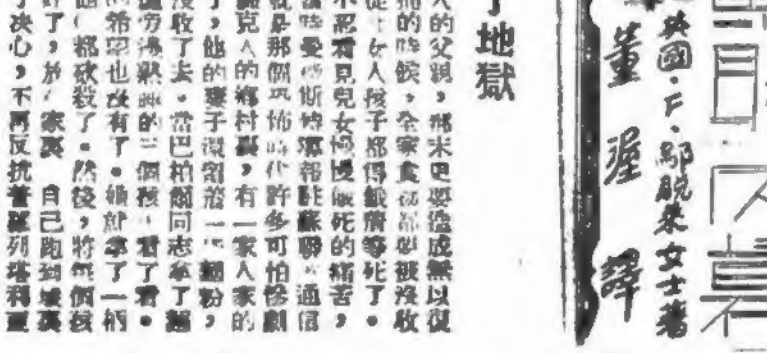 英國·F·鄔脫萊女士著
董渥譯
了地獄
人的父親，那末更要造成無以復
捕的時候，全家食都被沒收
女人孩子都得餓等死了。
不忍看見兒女慢慢餓死的痛苦，
時曼斯特導報駐蘇聯通信
就是那個恐怖時代許多可怕慘劇
克人的鄉村裏，有一家人家的
了，他的妻子還留着一麵粉，
沒收了去。當巴柏爾同志拿了麵
旁邊熟睡的三個孩看了看。
的希望也沒有了。她就拿了一柄
都砍殺了。然後，將個孩
好了，放家裏 自己跑到裏
了決心，不再反抗普羅列塔利亞